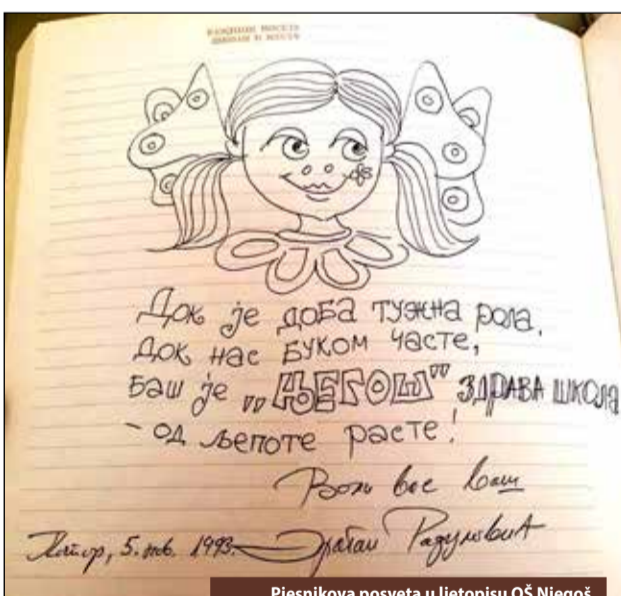 ВАЖНИЈИ ПОСЈЕТЕ
Док је доба тужна рола,
док нас буком часте,
баш је „ЊЕГОШ" ЗДРАВА ШКОЛА
- од љепоте расте!
Воли вас ваш
Котор, 5. нов. 1993. Драган Радуловић
Pjesnikova posveta u ljetopisu OŠ Njegoš